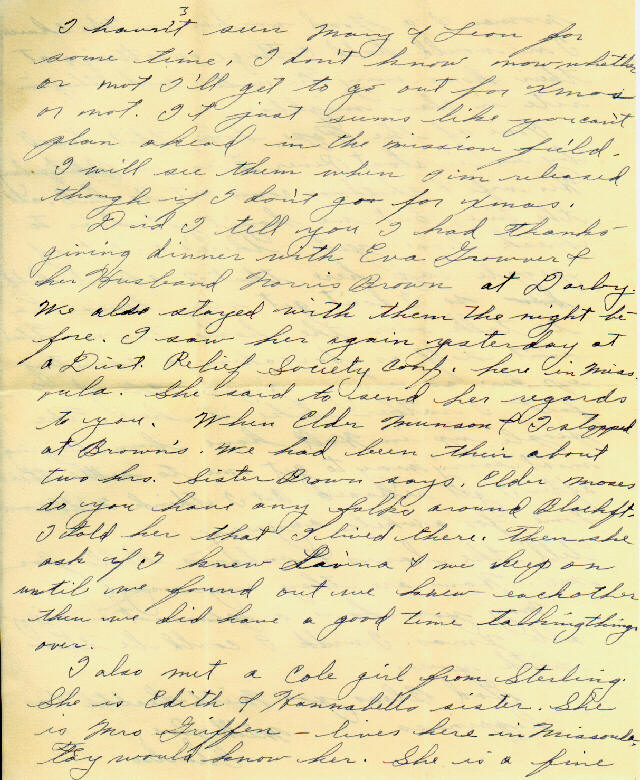 3
I haven't seen Mary & Leon for
some time. I don't know now whether
or not I'll get to go out for Xmas
or not. It just seems like you can't
plan ahead in the mission field.
I will see them when I'm released
though if I don't go for Xmas.
Did I tell you I had thanks-
giving dinner with Eva Growver &
her Husband Norris Brown at Darby.
We also stayed with them the night be-
fore. I saw her again yesterday at
a Dist. Relief Society Conf. here in Miss-
oula. She said to send her regards
to you. When Elder Munson & I stopped
at Brown's. We had been their about
two hrs. Sister Brown says, Elder Moses
do you have any folks around Blackft.
I told her that I lived there. Then she
ask if I knew Lavina & we keep on
until we found out we knew eachother
then we did have a good time talking things
over.
I also met a Cole girl from Sterling.
She is Edith & Hannabells sister. She
is Mrs Griffen - lives here in Missoula.
Fay would know her. She is a fine